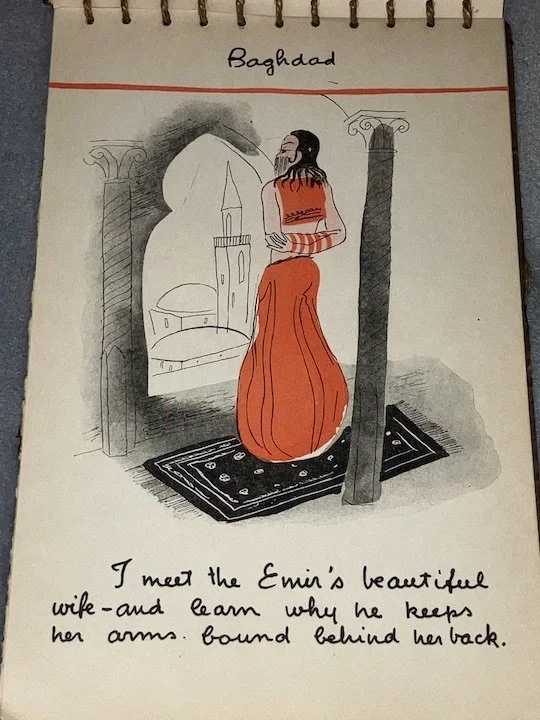 Baghdad
I meet the Emir's beautiful
wife-and learn why he keeps
her arms. bound behind her back.